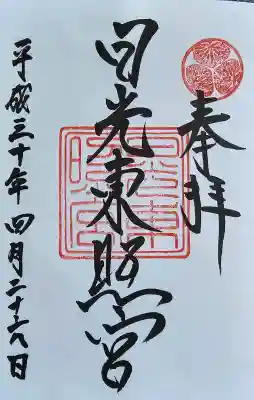 奉拝
日光東照宮
平成三十年四月二十六日